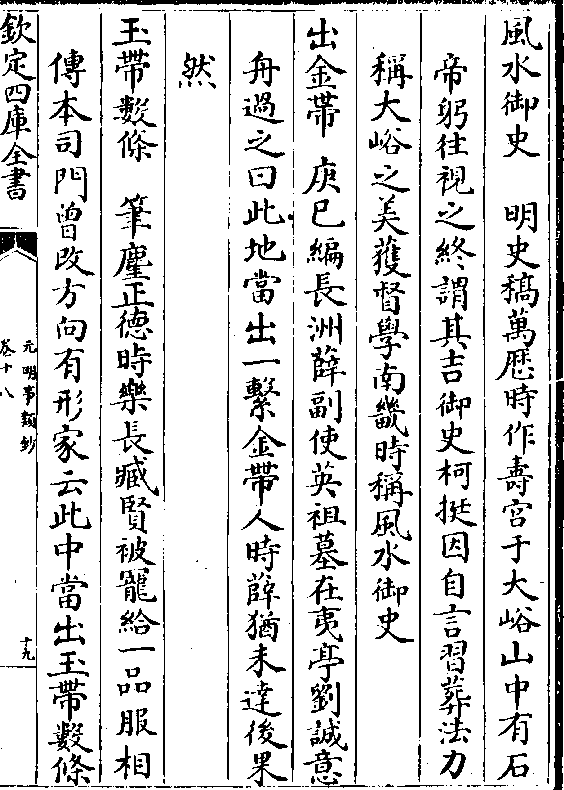 風水御史　明史稿萬歴時作壽宫于大峪山中有石
帝躬往視之終謂其吉御史柯挺因自言習葬法力
稱大峪之美獲督學南畿時稱風水御史
出金帶　庚巳編長洲薛副使英祖墓在夷亭劉誠意
舟過之曰此地當出一繫金帶人時薛猶未達後果
然
玉帶數條　筆麈正德時樂長臧賢被寵給一品服相
傳本司門曾改方向有形家云此中當出玉帶數條
欽定四庫全書
元明事類鈔
卷十八
十九